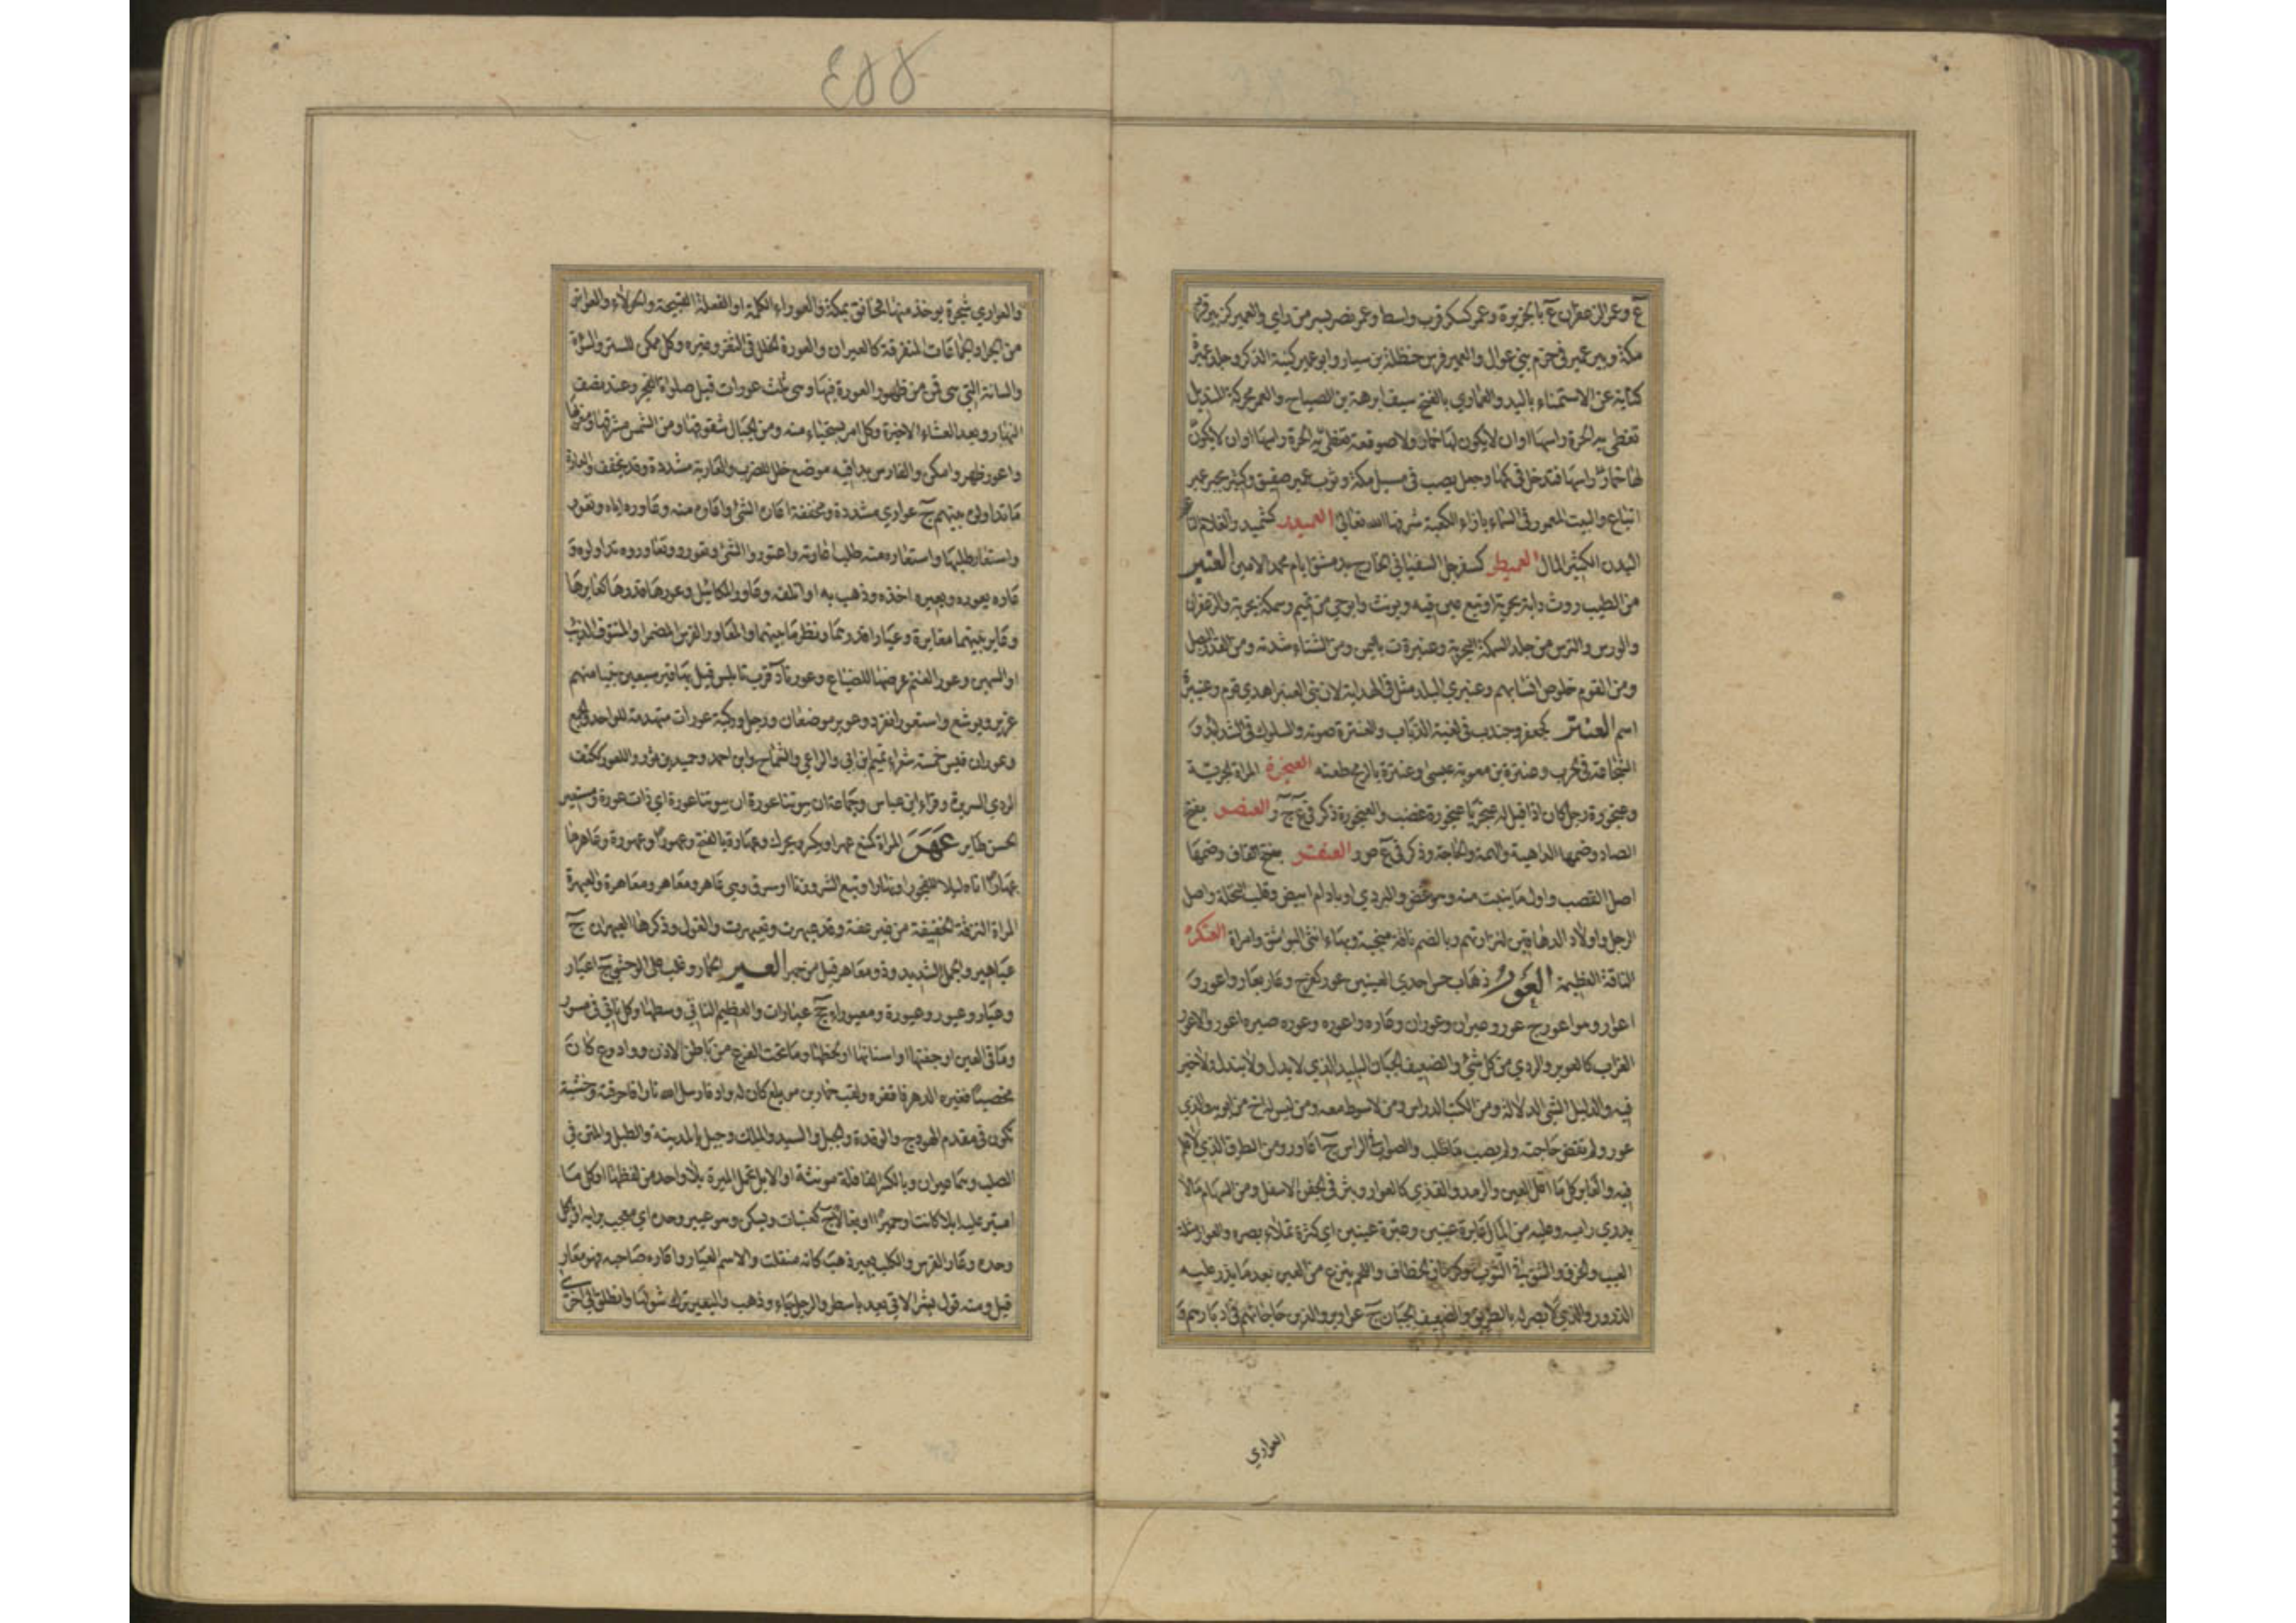 ع وعمر الزعفران ع بالجزيرة وعمر كسكر قرب واسط وعمر نصر بسر من راي والعمير كزبير قرب
مكة وبير عمير في حزم بني عوال والعمير فرس حنظلة بن سيار وابو عمير كنية الذكر وجلد عميرة
كناية عن الاستمناء باليد والعماري بالفتح سيف ابرهة بن الصباح والعمر محركة المنديل
تغطي به الحرة راسها او ان لا يكون لها خمار ولا صوقعة تغطي به الحرة راسها او ان لا يكون
لها خمار راسها فتدخل في كمها وجبل يصب في مسيل مكة وثوب عمير صفيق وكثير بجير عمير
اتباع والبيت المعمور في السماء بازاء الكعبة شرفها الله تعالى العميدر كشميدر الغلام الناعم
البدن الكثير المال العميطر كسفرجل السفياني الخارج بدمشق ايام محمد الامين العنبر
من الطيب روث دابة بحرية او نبع عين فيه ويونث وابو حي من تميم وسمكة بحرية والزعفران
والورس والترس من جلد السمكة البحرية وعنبرة ة باليمن ومن الشتاء شدته ومن القدر البصل
ومن القوم خلوص انسابهم وعنبري البلد مثل في الهداية لان بني العنبر اهدي قوم وعنبرة
اسم العنتر كجعفر وجندب في لغية الذباب والعنترة صوته والسلوك في الشدايد و
الشجاعة في الحرب وعنترة بن معوية عبسي وعنترة بالرمح طعنه العنجرة المراة الجرية
وعنجورة رجل كان اذا قيل له عنجر يا عنجورة غضب والعنجورة ذكر في ع ج ر العنصر بفتح
الصاد وضمها الداهية والهمة والحاجة وذكر في ع ص ر العنقر بفتح القاف وضمها
اصل القصب واول ما ينبت منه وهو غض والبردي او ما دام ابيض وقلب النخلة واصل
الرجل واولاد الدهاقين لترارتهم وبالضم ناقة منجبة وبهاء انثى البواشق وامراة العنكرة
الناقة العظيمة العور ذهاب حس احدي العينين عور كفرح وعار يعار واعور و
اعوار وهو اعور ج عور وعيران وعوران وعاره واعوره وعوره صيره اعور والاعور
الغراب كالعوير والردي من كل شي والضعيف الجبان البليد الذي لا يدل ولا يندل ولا خير
فيه والدليل السي الدلالة ومن الكتب الدارس ومن لا سوط معه ومن ليس له اخ من ابويه والذي
عور ولم تقض حاجته ولم يصب ما طلب والصواب في الراس ج اعاور ومن الطرق الذي لا علم
فيه والعاير كل ما اعل العين والرمد والقذي كالعوار وبثر في الجفن الاسفل ومن السهام ما لا
يدري راميه وعليه من المال عايرة عينين وعيرة عينين اي كثرة تملاء بصره والعوار مثلثة
العيب والخرق والشق في الثوب وكرمان الخطاف واللحم ينزع من العين بعد ما يذر عليه
الذرور والذي لا بصر له بالطريق والضعيف الجبان ج عواوير والذين حاجاتهم في ادبارهم و
العواري
٤٥٥
والعواري شجرة يوخذ منها المخانق بمكة والعوراء الكلمة او الفعلة القبيحة والحولاء والعواير
من الجراد الجماعات المتفرقة كالعيران والعورة الخلل في الثغر وغيره وكل ممكن للستر والسوأة
والساعة التي هي قمن من ظهور العورة فيها وهي ثلث عورات قبل صلوة الفجر وعند نصف
النهار وبعد العشاء الاخيرة وكل امر يستحياء منه ومن الجبال شقوقها ومن الشمس مشرقها ومغربها
واعور ظهر وامكن والفارس بدا فيه موضع خلل للضرب والعارية مشددة وقد يخفف والعارة
ما تداولوه بينهم ج عواري مشددة ومخففة اعاره الشي واعاره منه وعاوره اياه وتعور
واستعار طلبها واستعاره منه طلب اعارته واعتوروا الشي وتعوروه وتعاوروه تداولوه و
عاره يعوره ويعيره اخذه وذهب به او اتلفه وعاور المكاييل وعورها قدرها كعايرها
وعاير بينهما معايرة وعيارا قدرهما ونظر ما بينهما والمعار الفرس المضمر او المنتوف الذنب
او السمين وعور الغنم عرضها للضياع وعورتا د قرب نابلس قيل بها قبر سبعين نبيا منهم
عزير ويوشع واستعور انفرد وعوير موضعان ورجل وركية عورات متهدمة للواحد والجمع
وعوران قيس خمسة شعراء تميم بن ابي والراعي والشماخ وابن احمر وحميد بن ثور والعور ككتف
الردي السريرة وقراء ابن عباس وجماعة ان بيوتنا عورة اي ذات عورة ومستعير
الحسن طاير عهر المراة كمنع عهرا ويكسر ويحرك وعهارة بالفتح وعهورا وعهورة وعاهرها
عهارا اتاها ليلا للفجور او نهارا او تبع الشر وزنا او سرق وهي عاهر ومعاهر ومعاهرة والعيهرة
المراة النزقة الخفيفة من غير عفة وقد عيهرت وتعيهرت والغول وذكرها العيهران ج
عياهير والجمل الشديد وذو معاهر قيل من حمير العير الحمار وغلب على الوحشي ج اعيار
وعيار وعيور وعيورة ومعيوراء جج عيارات والعظيم الناتي وسطها وكل ناتي في مستو
وماقي العين او جفنها او انسانها او لحظها وما تحت الفرع من باطن الاذن وواد وع كان
مخصبا فغيره الدهر فاقفره ولقب حمار بن مويلع كان له واد فارسل الله نارا فاحرقته وخشبة
تكون في مقدم الهودج والوتد والجبل والسيد والملك وجبل بالمدينة والطبل والمتن في
الصلب وهما عيران وبالكسر القافلة مونثة او الابل تحمل الميرة بلا واحد من لفظها او كل ما
امتير عليه ابلا كانت او حميرا او بغالا ج كعنبات ويسكن وهو عيير وحده اي معجب برايه او ياكل
وحده وعار الفرس والكلب يعير ذهب كانه منفلت والاسم العيار واعاره صاحبه فهو معار
قيل ومنه قول بشر الاتي بعيد باسطر والرجل جاء وذهب والبعير ترك شولها وانطلق الى اخرى